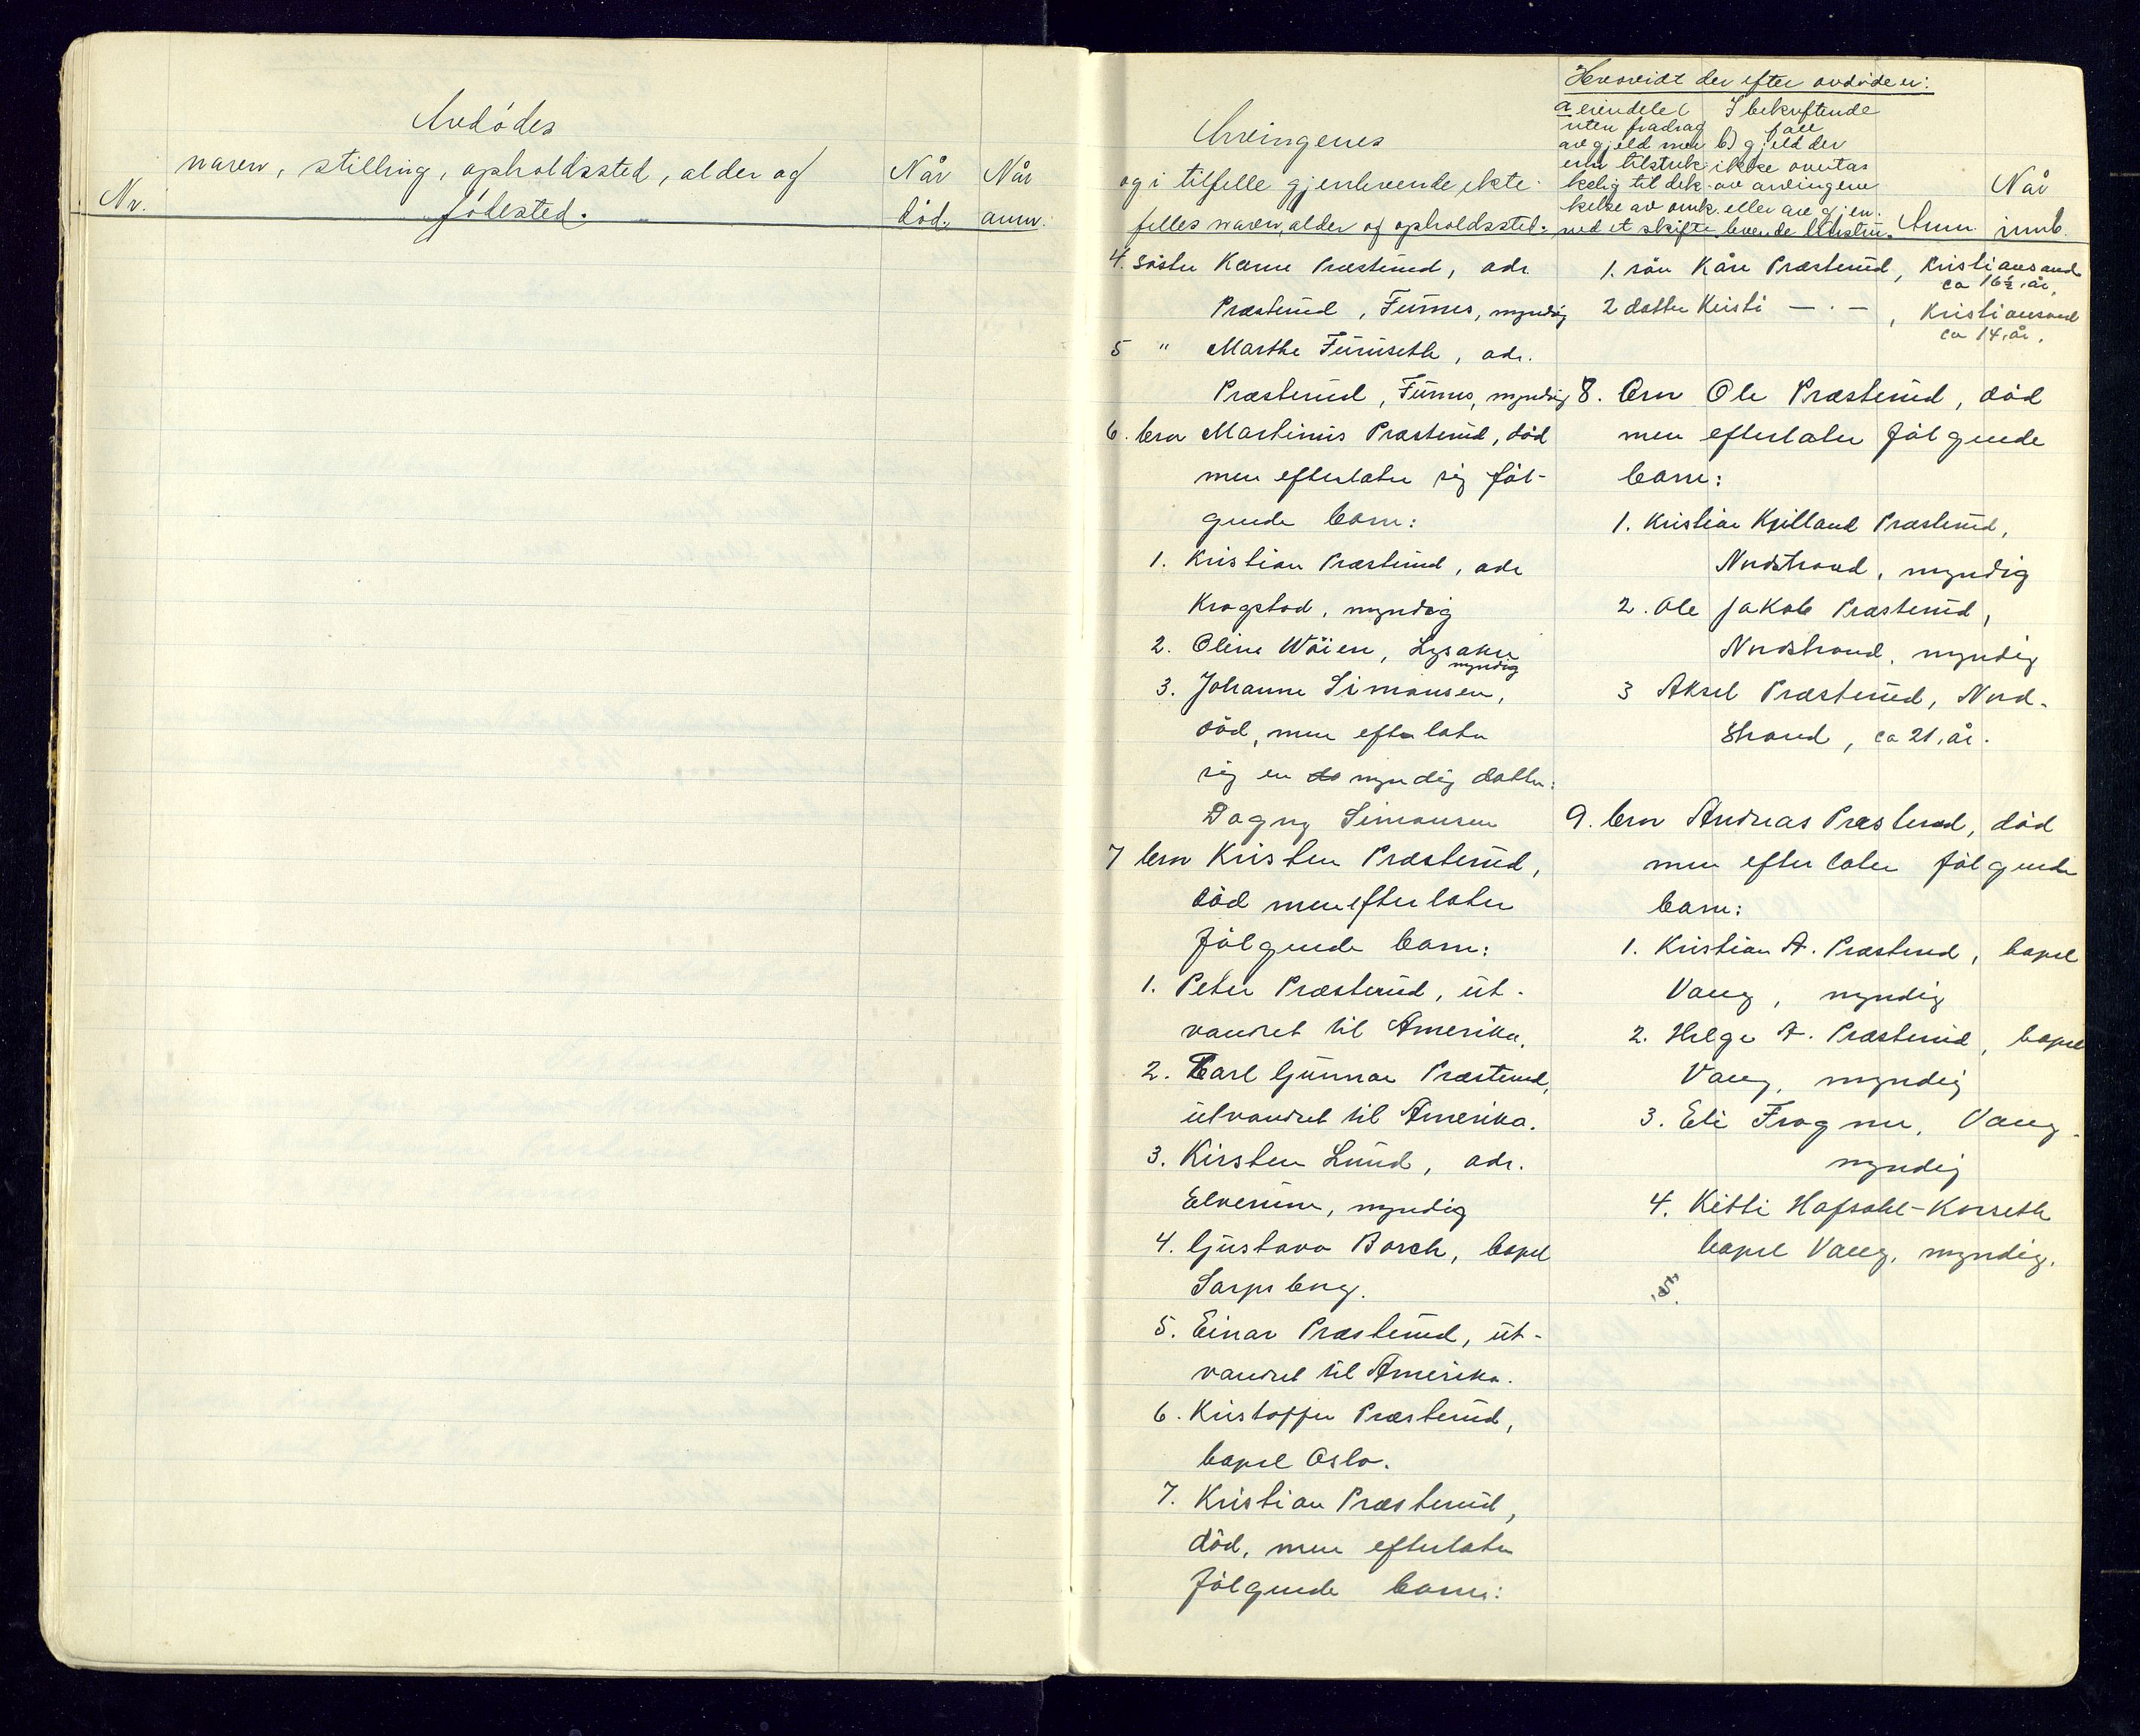 Avdødes
navn, stilling, opholdssted, alder og
fødested.
Nr.
Når
død.
Når
anm.
Arvingenes
og i tilfelle gjenlevende ekte-
felles navn, alder og opholdssted.
Hvorvidt der efter avdøde er:
a eiendeler
uten fradrag
av gjeld men
enn tilstrek-
kelig til dek-
kelse av omk.
ved et skifte
I bekreftende
fall
b) gjeld der
ikke overtas
av arvingene
eller av gjen-
levende
Anm.
Når
innb.
4. søster Karen Præsterud, adr.
Præsterud, Furnes, myndig
5 " Marthe Furuseth, adr.
Præsterud, Furnes, myndig
6. bror Martinus Præsterud, død
men efterlater sig føl-
gende barn:
1. Kristian Præsterud, adr
Krogstad, myndig
2. Oline Wøien, Lysaker
myndig
3. Johanne Simonsen,
død, men efterlater
sig en do myndig datter:
Dagny Simonsen
7 bror Kristen Præsterud,
død men efterlater
følgende barn:
1. Peter Præsterud, ut-
vandret til Amerika.
2. Carl Gunnar Præsterud,
utvandret til Amerika.
3. Kirsten Lund, adr.
Elverum, myndig
4. Gustava Borch, bopel
Sarpsborg.
5. Einar Præsterud, ut-
vandret til Amerika.
6. Kristoffer Præsterud,
bopel Oslo.
7. Kristian Præsterud,
død, men efterlater
følgende barn:
1. søn Kåre Præsterud, Kristiansand
ca 16½ år,
2 datter Kirsti — . — , Kristiansand
ca 14 år.
8. Bror Ole Præsterud, død
men efterlater følgende
barn:
1. Kristian Kjilland Præsterud,
Nordstrand, myndig
2. Ole Jakob Præsterud,
Nordstrand, myndig
3 Aksel Præsterud, Nord-
strand, ca 21 år.
9. bror Andreas Præsterud, død
men efterlater følgende
barn:
1. Kristian A. Præsterud, bopel
Vang, myndig
2. Helge A. Præsterud, bopel
Vang, myndig
3. Eli Frogner, Vang.
myndig
4. Kitti Hafsahl-Korseth
bopel Vang, myndig.